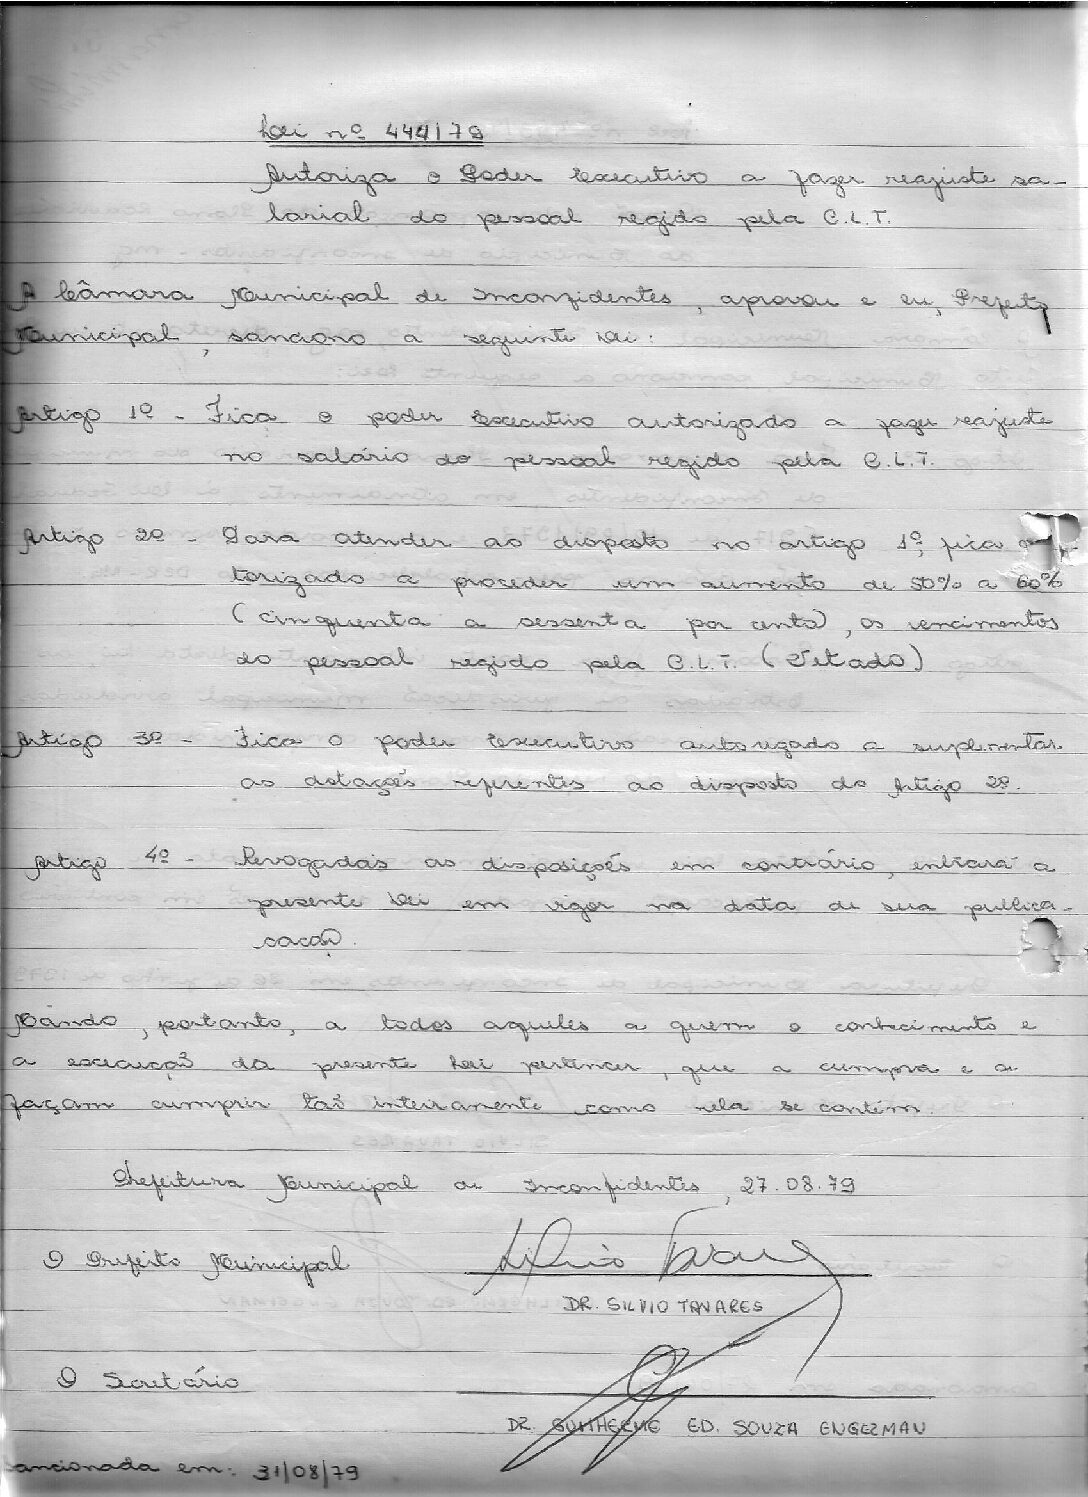 Lei nº 444/79
Autoriza o Poder Executivo a fazer reajuste sa-
larial do pessoal regido pela C.L.T.
A Câmara Municipal de Inconfidentes, aprovou e eu, Prefeito
Municipal, sanciono a seguinte Lei:
Artigo 1º - Fica o poder Executivo autorizado a fazer reajuste
no salário do pessoal regido pela C.L.T.
Artigo 2º - Para atender ao disposto no artigo 1º, fica
torizado a proceder um aumento de 50% a 60%
(cinquenta a sessenta por cento), os vencimentos
do pessoal regido pela C.L.T. (Vetado)
Artigo 3º - Fica o poder Executivo autorizado a suplementar
as dotações referentes ao disposto do Artigo 2º.
Artigo 4º - Revogadas as disposições em contrário, entrará a
presente Lei em vigor na data de sua publica-
cação.
Mando, portanto, a todos aqueles a quem o conhecimento e
a execução da presente Lei pertencer, que a cumpra e a
façam cumprir tão inteiramente como nela se contém
Prefeitura Municipal de Inconfidentes, 27.08.79
O Prefeito Municipal Silvio Tavares
DR. SILVIO TAVARES
O Secretário
DR. GUILHERME ED. SOUZA ENGEZMAN
ancionada em: 31/08/79